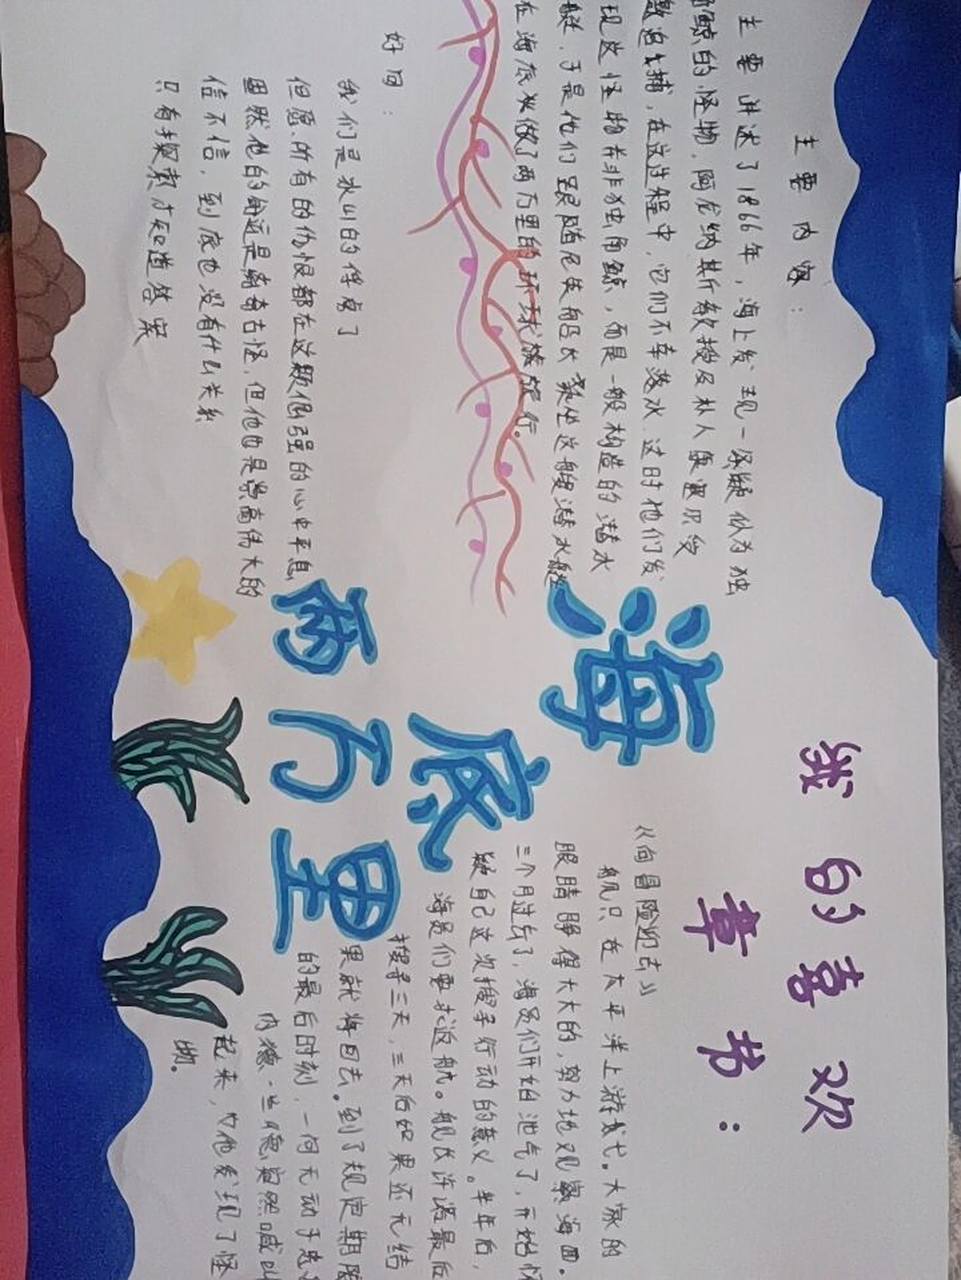 主要内容：
主要讲述了1866年，海上发现一只疑似为独
角鲸的怪物，阿龙纳其斯教授及朴人康塞尔受
邀追捕，在这过程中，它们不幸落水，这时他们发
现这怪物并非独角鲸，而是一般构造的潜水
艇，于是他们跟随尼莫船长乘坐这艘潜水艇
在海底做了两万里的环球旅行。
好句：
我们是冰山的俘虏了
但愿所有的仇恨都在这颗倔强的心中平息
虽然他的命运是离奇古怪，但他也是崇高伟大的
信不信，到底也没有什么关系
只有探索才知道答案
海底
两万里
我的喜欢
章书：
《向冒险迎去》
舰只在太平洋上游弋。大家的
眼睛睁得大大的，努力地观察海面。
三个月过去了，海员们开始泄气了，开始怀
疑自己这次搜寻行动的意义。半年后，
海员们要求返航。舰长许诺最后
搜寻三天，三天后如果还无结
果就将回去。到了规定期限
的最后时刻，一向无动于
内德·兰德突然喊叫
起来，女他发现了怪
物。